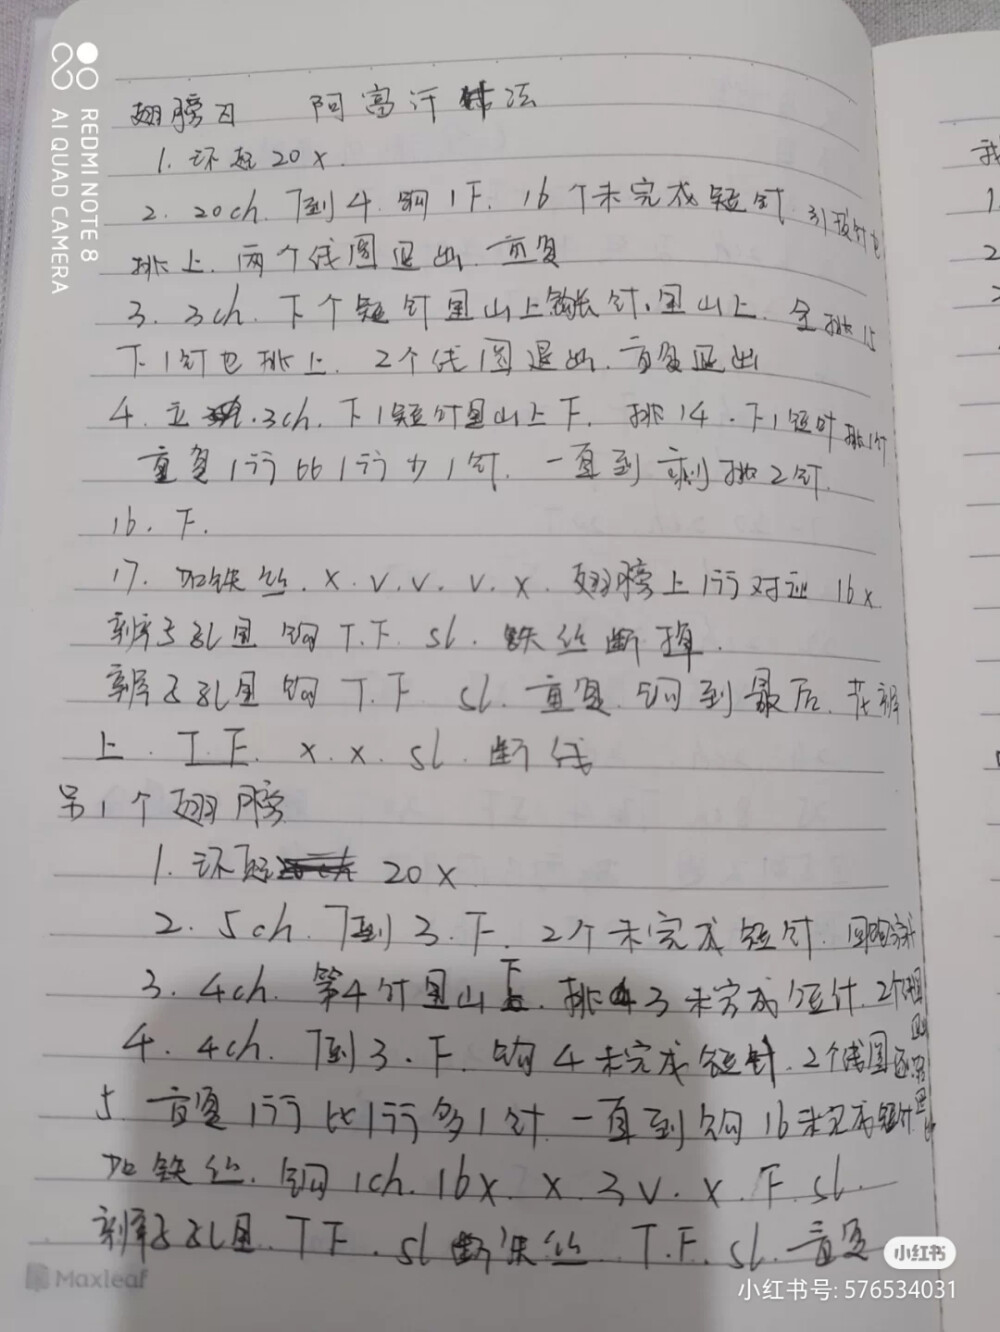 翅膀因 阿富汗针法
1. 环起20x.
2. 20ch. 倒4. 钩1F. 16个未完成短针. 引拔针也
挑上. 两个线圈退出. 重复
3. 3ch. 下个短针里山上钩长针. 里山上. 全挑15
下1针也挑上. 2个线圈退出. 重复退出
4. 立 3ch. 下1短针里山上F. 挑14. 下1短针挑1针
重复1行比1行少1针. 一直到剩挑2针.
16. F.
17. 加铁丝. x. v. v. v. x. 翅膀上1行对应16x
辫子孔里钩T.F. sl. 铁丝断掉.
辫子孔里钩T.F. sl. 重复. 钩到最后. 花瓣
上. T.F. x. x. sl. 断线
另1个翅膀
1. 环起 20x
2. 5ch. 倒3. F. 2个未完成短针.
3. 4ch. 第4针里山上F. 挑3未完成短针. 2个线圈
4. 4ch. 倒3. F. 钩4未完成短针. 2个线圈退出
5 重复1行比1行多1针 一直到钩16未完成短针
加铁丝. 钩1ch. 16x. x. 3v. x. F. sl.
辫子孔里. T F. sl 断铁丝. T.F. sl. 重复
REDMI NOTE 8
AI QUAD CAMERA
Maxleaf
小红书
小红书号: 576534031